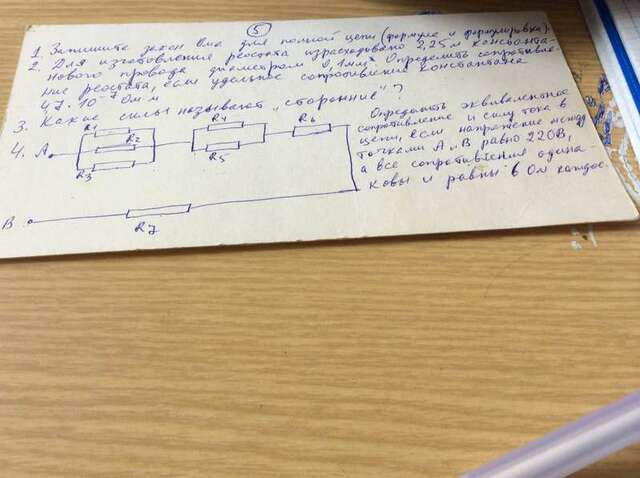 5
1. Запишите закон Ома для полной цепи (формула и формулировка).
2. Для изготовления реостата израсходовано 2,25м константа-
нового провода диаметром 0,1мм² Определить сопротивле-
ние реостата, если удельное сопротивление константана
47·10⁻⁷ Ом·м
3. Какие силы называют „сторонние"?
4. A
R1
R2
R3
R4
R5
R6
B
R7
Определить эквивалентное
сопротивление и силу тока в
цепи, если напряжение между
точками А и В равно 220В,
а все сопротивления одина-
ковы и равны 6 Ом каждое